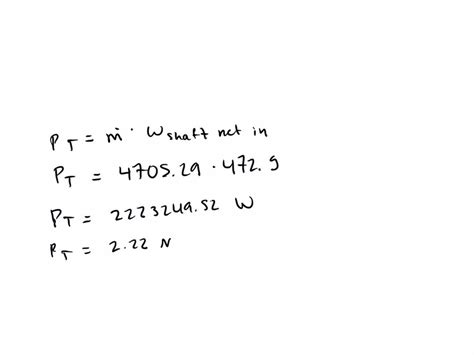 P_T = ṁ · W shaft net in
P_T = 4705.29 · 472.9
P_T = 2223249.52 W
P_T = 2.22 N